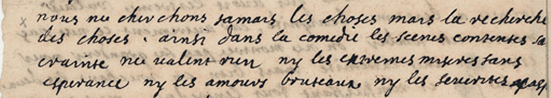 nous ne cherchons jamais les choses mais la recherche
des choses. ainsi dans la comedie les scenes contentes sa
crainte ne valent rien ny les extremes miseres sans
esperance ny les amours brutaux ny les severites aspres